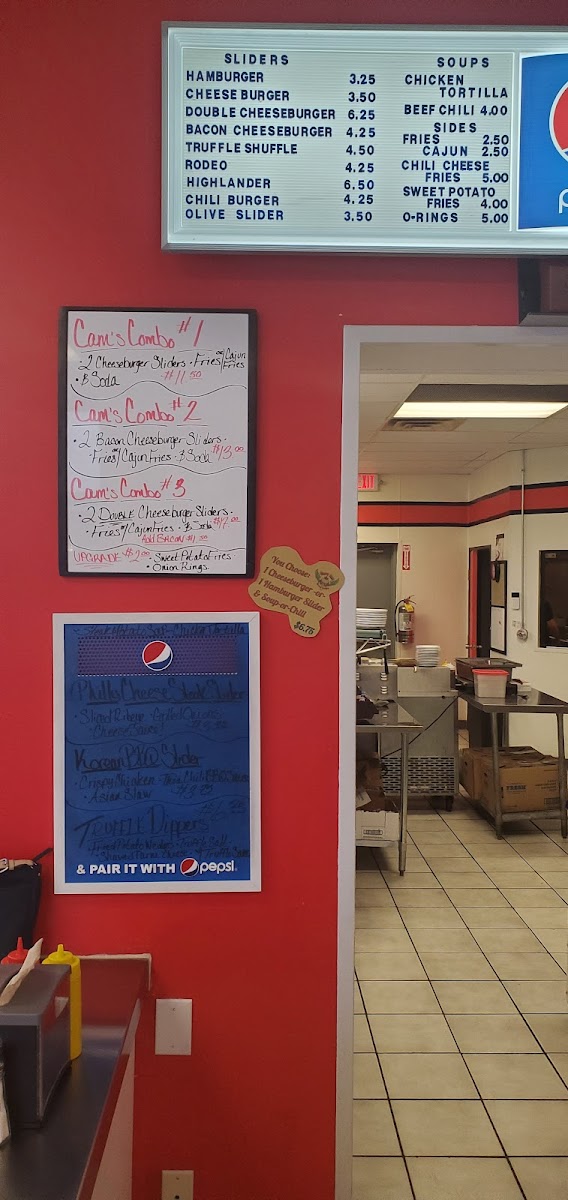 SLIDERS
HAMBURGER 3.25
CHEESE BURGER 3.50
DOUBLE CHEESEBURGER 6.25
BACON CHEESEBURGER 4.25
TRUFFLE SHUFFLE 4.50
RODEO 4.25
HIGHLANDER 6.50
CHILI BURGER 4.25
OLIVE SLIDER 3.50
SOUPS
CHICKEN
TORTILLA
BEEF CHILI 4.00
SIDES
FRIES 2.50
CAJUN 2.50
CHILI CHEESE
FRIES 5.00
SWEET POTATO
FRIES 4.00
O-RINGS 5.00
Cam's Combo #1
2 Cheeseburger Sliders · Fries or/Cajun Fries
· & Soda $11.50
Cam's Combo #2
· 2 Bacon Cheeseburger Sliders ·
Fries or/Cajun Fries · & Soda $13.00
Cam's Combo #3
· 2 DOUBLE Cheeseburger Sliders ·
Fries or/Cajun Fries · & Soda $17.00
Add BACON
UPGRADE $2.00 · Sweet Potato Fries
· Onion Rings
EXIT
You Choose:
1 Cheeseburger -or-
1 Hamburger Slider
& Soup-or-Chili
$6.75
Chicken Tortilla
Philly Cheese Steak Slider
· Sliced Ribeye · Grilled Onions
· Cheese Sauce
Korean BBQ Slider
· Crispy Chicken
· Asian Slaw
TRUFFLE Dippers
& PAIR IT WITH pepsi